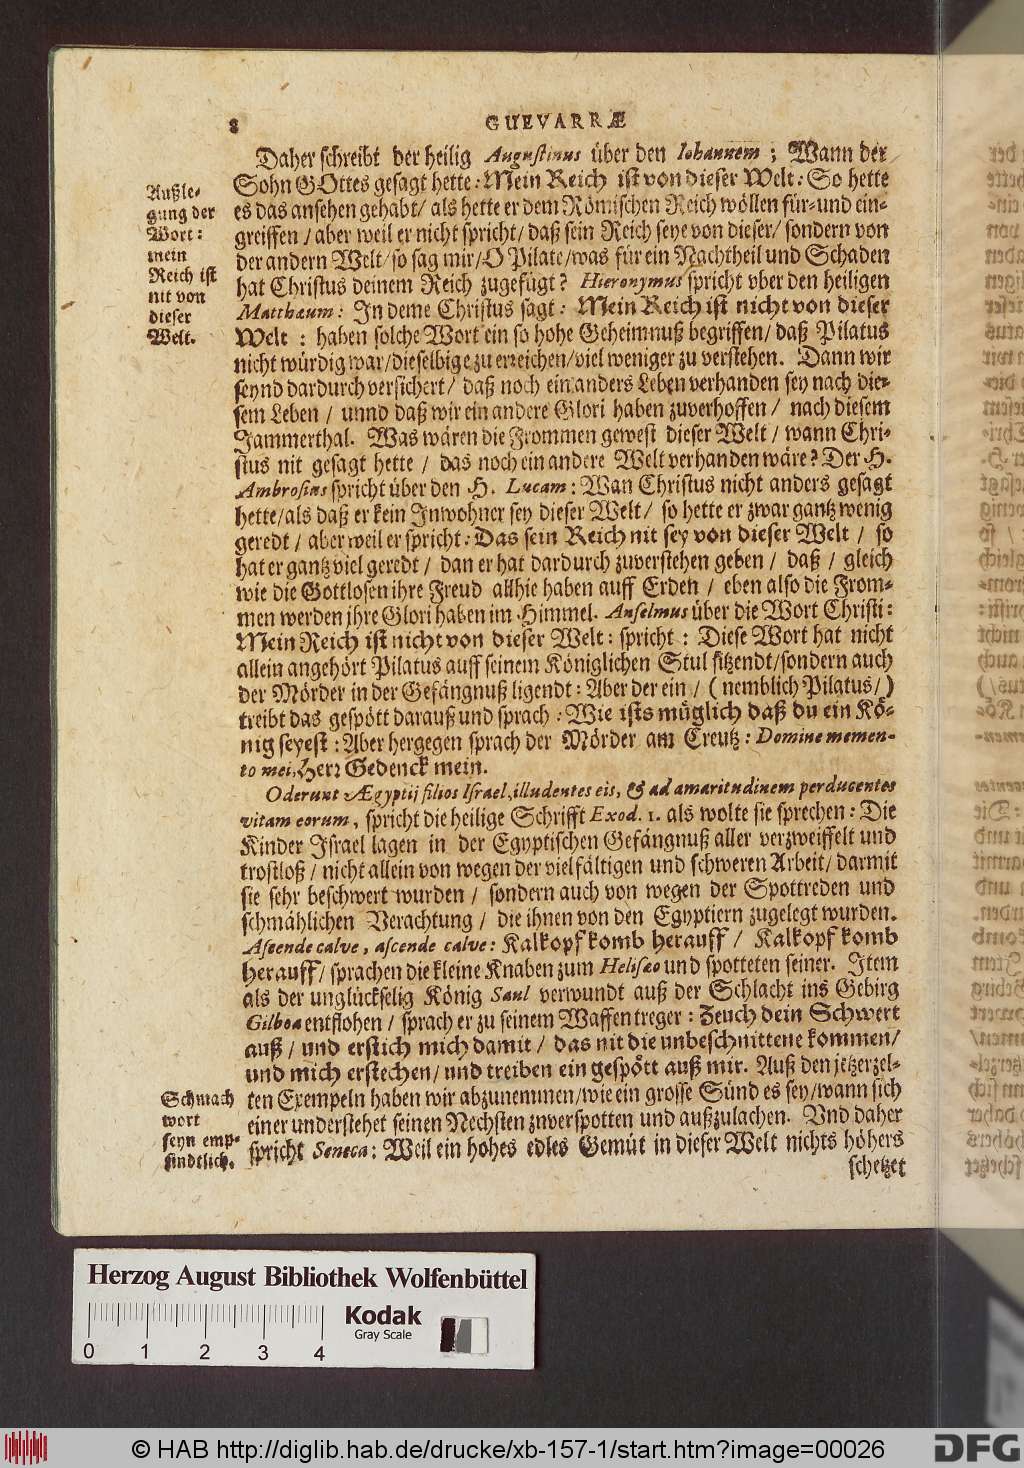 8 GUEVARRÆ
Daher schreibt der heilig Augustinus über den Iohannem; Wann der
Sohn GOttes gesagt hette: Mein Reich ist von dieser Welt: So hette
es das ansehen gehabt/ als hette er dem Römischen Reich wöllen für- und ein-
greiffen/ aber weil er nicht spricht/ daß sein Reich seye von dieser/ sondern von
der andern Welt/ so sag mir/ O Pilate/ was für ein Nachtheil und Schaden
hat Christus deinem Reich zugefügt? Hieronymus spricht vber den heiligen
Matthæum: In deme Christus sagt: Mein Reich ist nicht von dieser
Welt: haben solche Wort ein so hohe Geheimnuß begriffen/ daß Pilatus
nicht würdig war/ dieselbige zu erreichen/ viel weniger zu verstehen. Dann wir
seynd dardurch versichert/ daß noch ein anders Leben verhanden sey nach die-
sem Leben/ unnd daß wir ein andere Glori haben zuverhoffen/ nach diesem
Jammerthal. Was wären die Frommen gewest dieser Welt/ wann Chri-
stus nit gesagt hette/ das noch ein andere Welt verhanden wäre? Der H.
Ambrosius spricht über den H. Lucam: Wan Christus nicht anders gesagt
hette/ als daß er kein Inwohner sey dieser Welt/ so hette er zwar gantz wenig
geredt/ aber weil er spricht: Das sein Reich nit sey von dieser Welt/ so
hat er gantz viel geredt/ dan er hat dardurch zuverstehen geben/ daß/ gleich
wie die Gottlosen ihre Freud allhie haben auff Erden/ eben also die From-
men werden jhre Glori haben im Himmel. Anselmus über die Wort Christi:
Mein Reich ist nicht von dieser Welt: spricht: Diese Wort hat nicht
allein angehört Pilatus auff seinem Königlichen Stul sitzendt/ sondern auch
der Mörder in der Gefängnuß ligendt: Aber der ein/ (nemblich Pilatus/)
treibt das gespött darauß und sprach: Wie ists müglich daß du ein Kö-
nig seyest: Aber hergegen sprach der Mörder am Creutz: Domine memen-
to mei, Herr Gedenck mein.
Oderunt Ægyptij filios Israel, illudentes eis, & ad amaritudinem perducentes
vitam eorum, spricht die heilige Schrifft Exod. 1. als wolte sie sprechen: Die
Kinder Israel lagen in der Egyptischen Gefängnuß aller verzweiffelt und
trostloß/ nicht allein von wegen der vielfältigen und schweren Arbeit/ darmit
sie sehr beschwert wurden/ sondern auch von wegen der Spottreden und
schmählichen Verachtung/ die ihnen von den Egyptiern zugelegt wurden.
Ascende calve, ascende calve: Kalkopf komb herauff/ Kalkopf komb
herauff/ sprachen die kleine Knaben zum Helisæo und spotteten seiner. Item
als der unglückselig König Saul verwundt auß der Schlacht ins Gebirg
Gilboa entflohen/ sprach er zu seinem Waffentreger: Zeuch dein Schwert
auß/ und erstich mich damit/ das nit die unbeschnittene kommen/
und mich erstechen/ und treiben ein gespött auß mir. Auß den jetzerzel-
ten Exempeln haben wir abzunemmen/ wie ein grosse Sünd es sey/ wann sich
einer understehet seinen Nechsten zuverspotten und außzulachen. Und daher
spricht Seneca: Weil ein hohes edles Gemüt in dieser Welt nichts höhers
schetzet
Außle-
gung der
Wort:
mein
Reich ist
nit von
dieser
Welt.
Schmach
wort
seyn emp-
findtlich.
Herzog August Bibliothek Wolfenbüttel
Kodak
Gray Scale
0 1 2 3 4
© HAB http://diglib.hab.de/drucke/xb-157-1/start.htm?image=00026
DFG